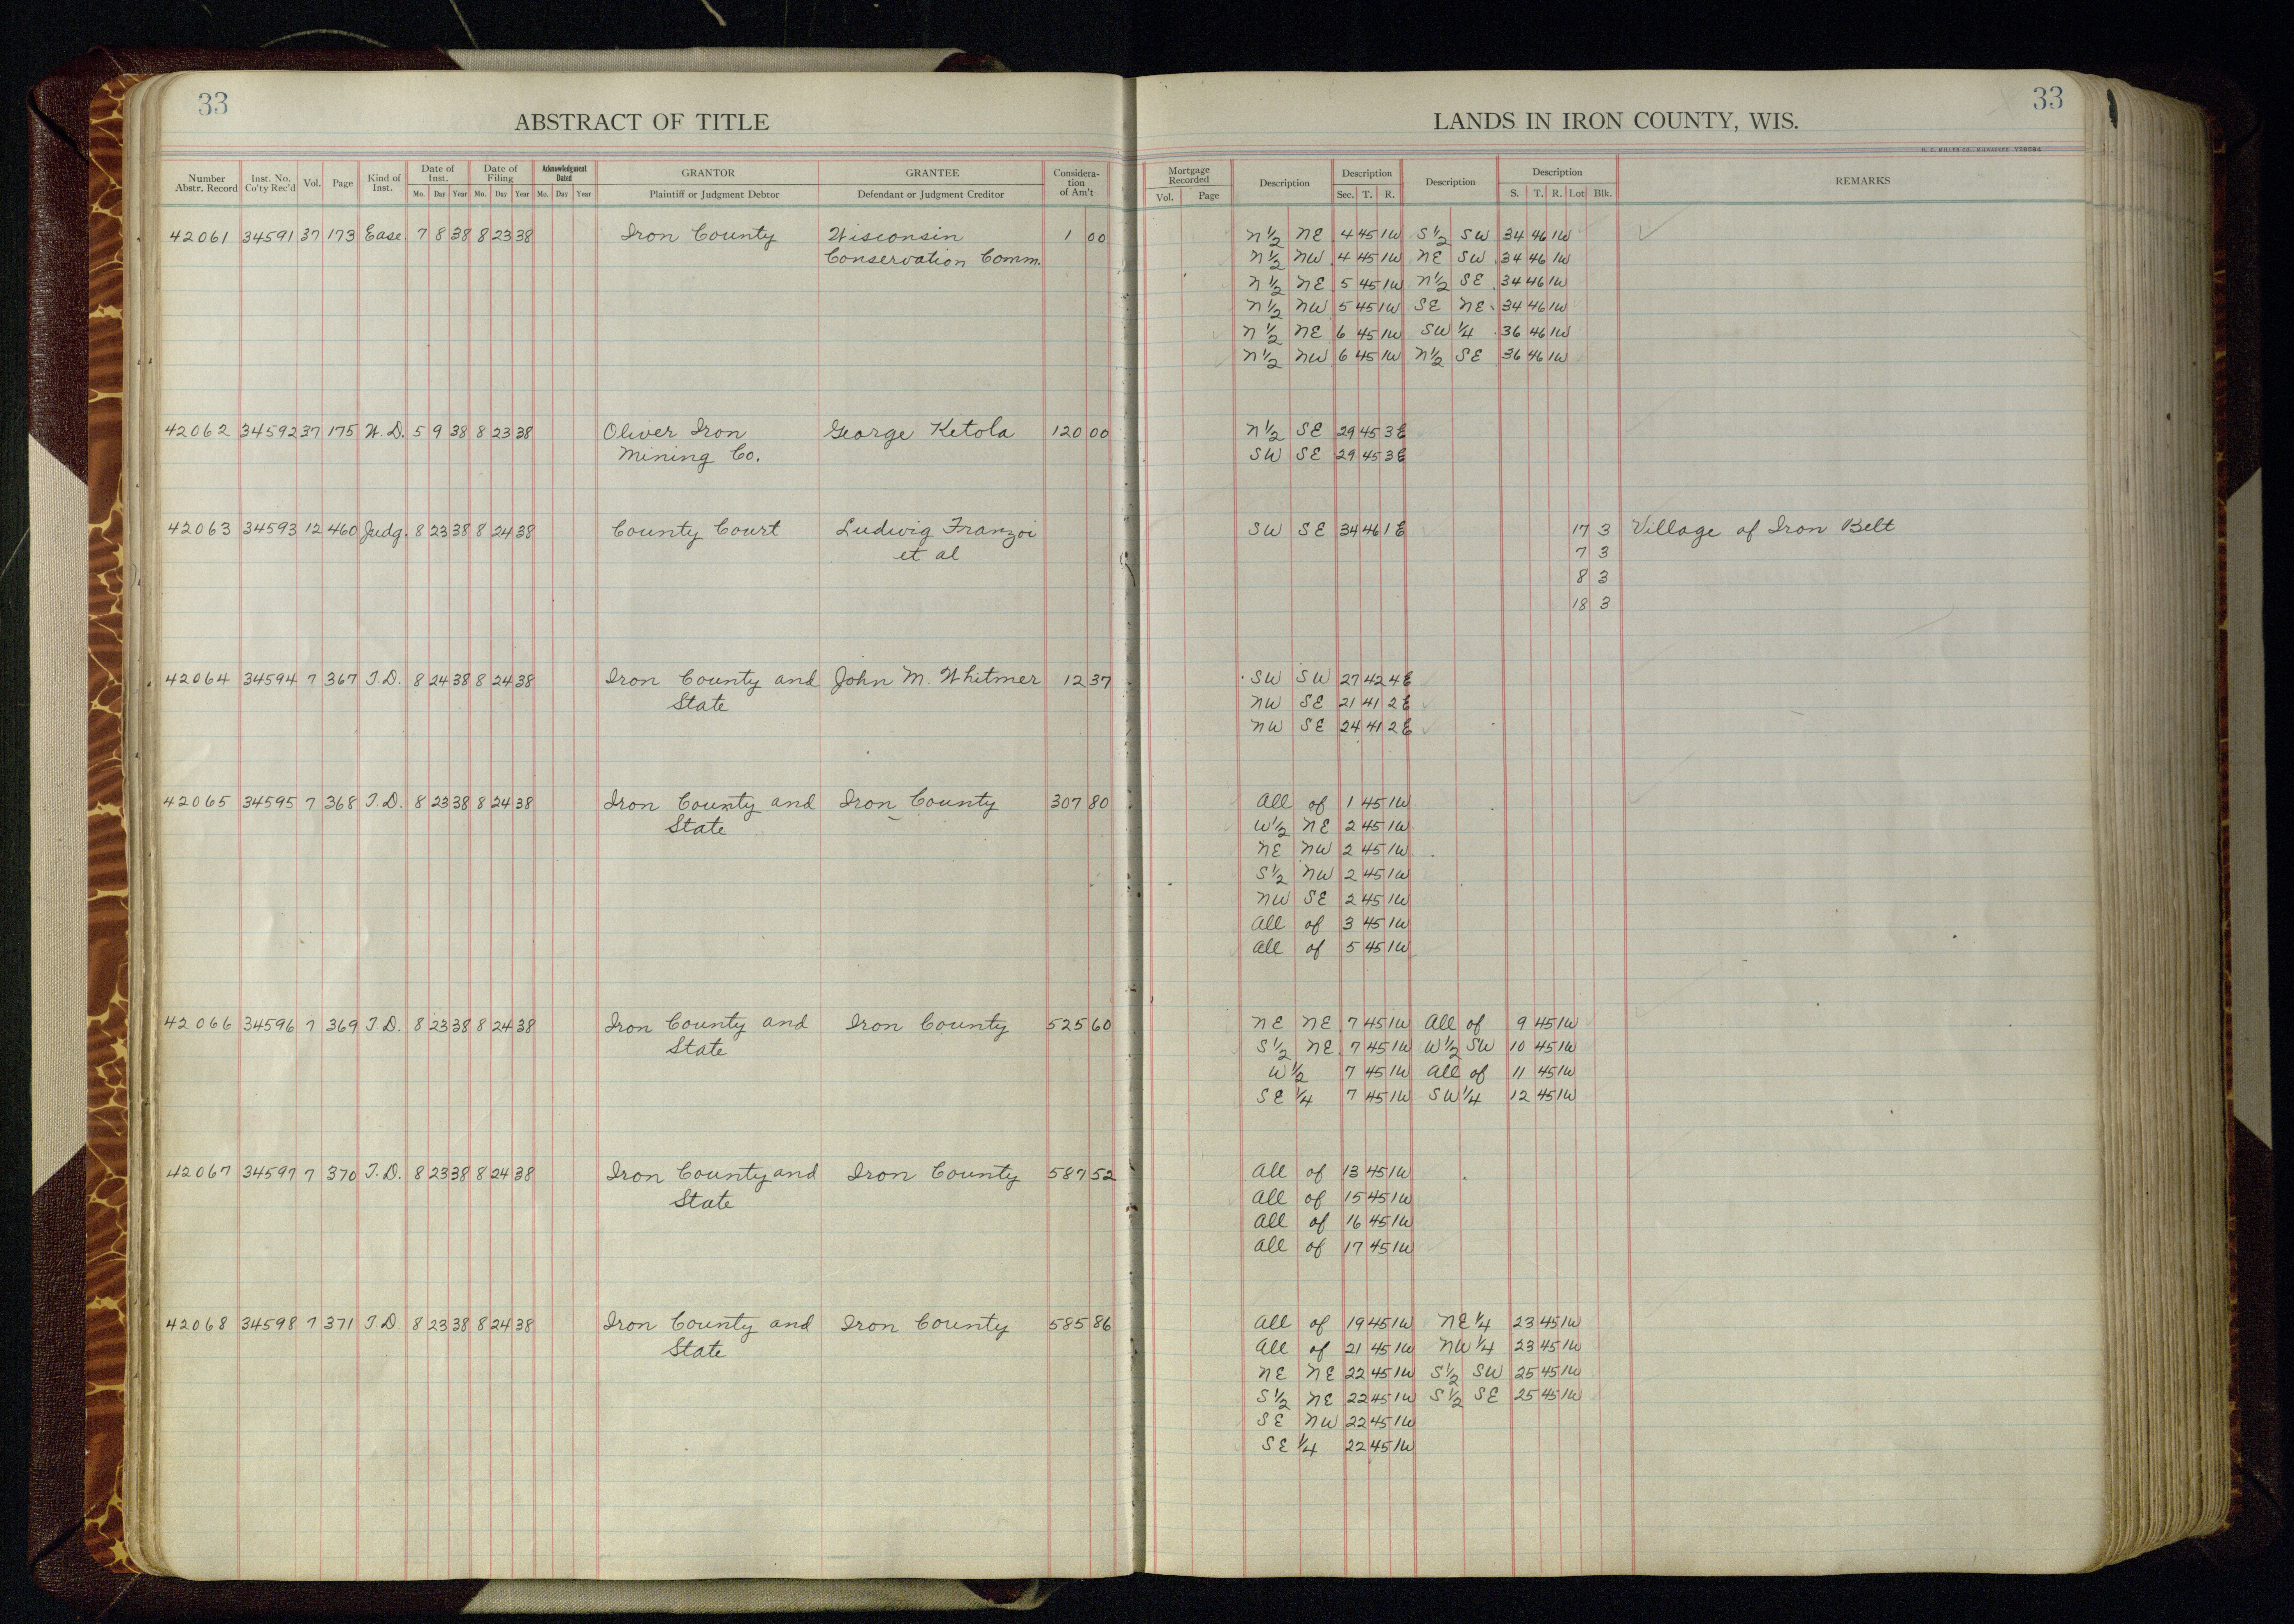 33
ABSTRACT OF TITLE
Number Abstr. Record Inst. No. Co'ty Rec'd Vol. Page Kind of Inst. Date of Inst. Mo. Day Year Date of Filing Mo. Day Year Acknowledgment Dated Mo. Day Year GRANTOR Plaintiff or Judgment Debtor GRANTEE Defendant or Judgment Creditor Consideration of Am't
42061 34591 37 173 Ease. 7 8 38 8 23 38 Iron County Wisconsin 1 00
Conservation Comm.
42062 34592 37 175 W.D. 5 9 38 8 23 38 Oliver Iron George Ketola 120 00
Mining Co.
42063 34593 12 460 Judg. 8 23 38 8 24 38 County Court Ludwig Franzoi
et al
42064 34594 7 367 T.D. 8 24 38 8 24 38 Iron County and John M. Whitmer 12 37
State
42065 34595 7 368 T.D. 8 23 38 8 24 38 Iron County and Iron County 307 80
State
42066 34596 7 369 T.D. 8 23 38 8 24 38 Iron County and Iron County 525 60
State
42067 34597 7 370 T.D. 8 23 38 8 24 38 Iron County and Iron County 587 52
State
42068 34598 7 371 T.D. 8 23 38 8 24 38 Iron County and Iron County 585 86
State
33
LANDS IN IRON COUNTY, WIS.
H. C. MILLER CO., MILWAUKEE Y28594
Mortgage Recorded Vol. Page Description Description Sec. T. R. Description Description S. T. R. Lot Blk. REMARKS
N 1/2 NE 4 45 1W S 1/2 SW 34 46 1W
N 1/2 NW 4 45 1W NE SW 34 46 1W
N 1/2 NE 5 45 1W N 1/2 SE 34 46 1W
N 1/2 NW 5 45 1W SE NE 34 46 1W
N 1/2 NE 6 45 1W SW 1/4 36 46 1W
N 1/2 NW 6 45 1W N 1/2 SE 36 46 1W
N 1/2 SE 29 45 3E
SW SE 29 45 3E
SW SE 34 46 1E 17 3 Village of Iron Belt
7 3
8 3
18 3
SW SW 27 42 4E
NW SE 21 41 2E
NW SE 24 41 2E
All of 1 45 1W
W 1/2 NE 2 45 1W
NE NW 2 45 1W
S 1/2 NW 2 45 1W
NW SE 2 45 1W
All of 3 45 1W
All of 5 45 1W
NE NE 7 45 1W All of 9 45 1W
S 1/2 NE 7 45 1W W 1/2 SW 10 45 1W
W 1/2 7 45 1W All of 11 45 1W
SE 1/4 7 45 1W SW 1/4 12 45 1W
All of 13 45 1W
All of 15 45 1W
All of 16 45 1W
All of 17 45 1W
All of 19 45 1W NE 1/4 23 45 1W
All of 21 45 1W NW 1/4 23 45 1W
NE NE 22 45 1W S 1/2 SW 25 45 1W
S 1/2 NE 22 45 1W S 1/2 SE 25 45 1W
SE NW 22 45 1W
SE 1/4 22 45 1W